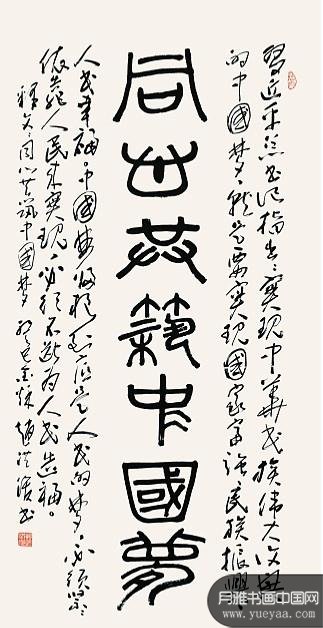 習近平总书记指出：实现中華民族伟大复興
的中國梦，就是要实现國家富强、民族振興、
同心共築中國夢
人民幸福。中國梦归根到底是人民的梦，必须紧紧
依靠人民来实现，必须不断为人民造福。
释文同心共筑中國梦 癸巳金秋 趙洪 书
月雅书画中国网
www.yueyaa.com